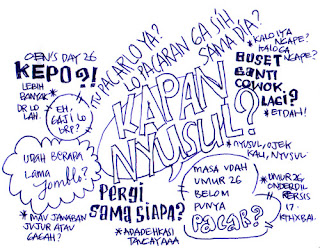 OEN'S DAY 26
KEPO?!
LEBIH
BANYAK
DR LO
LAH.
EH,
GAJI LO
BRP?
ITU PACARLO YA?
LO PACARAN GA SIH
SAMA DIA?
*KALO IYA
NGAPE?
KALO GA
NGAPE?
BUSET
GANTI
COWOK
LAGI?
*ETDAH!
KAPAN
NYUSUL?
*NYUSUL, OJEK
KALI, NYUSUL
UDAH BERAPA
LAMA
Jomblo?
*MAU JAWABAN
JUJUR ATAU
GAGAH?
PERGI
SAMA SIAPA?
TANCAYAAA
MASA UDAH
UMUR 26
BELOM
PUNYA
PACAR?
*UMUR 26
ONDERDIL
PERSIS
17.
KTHXBAI.